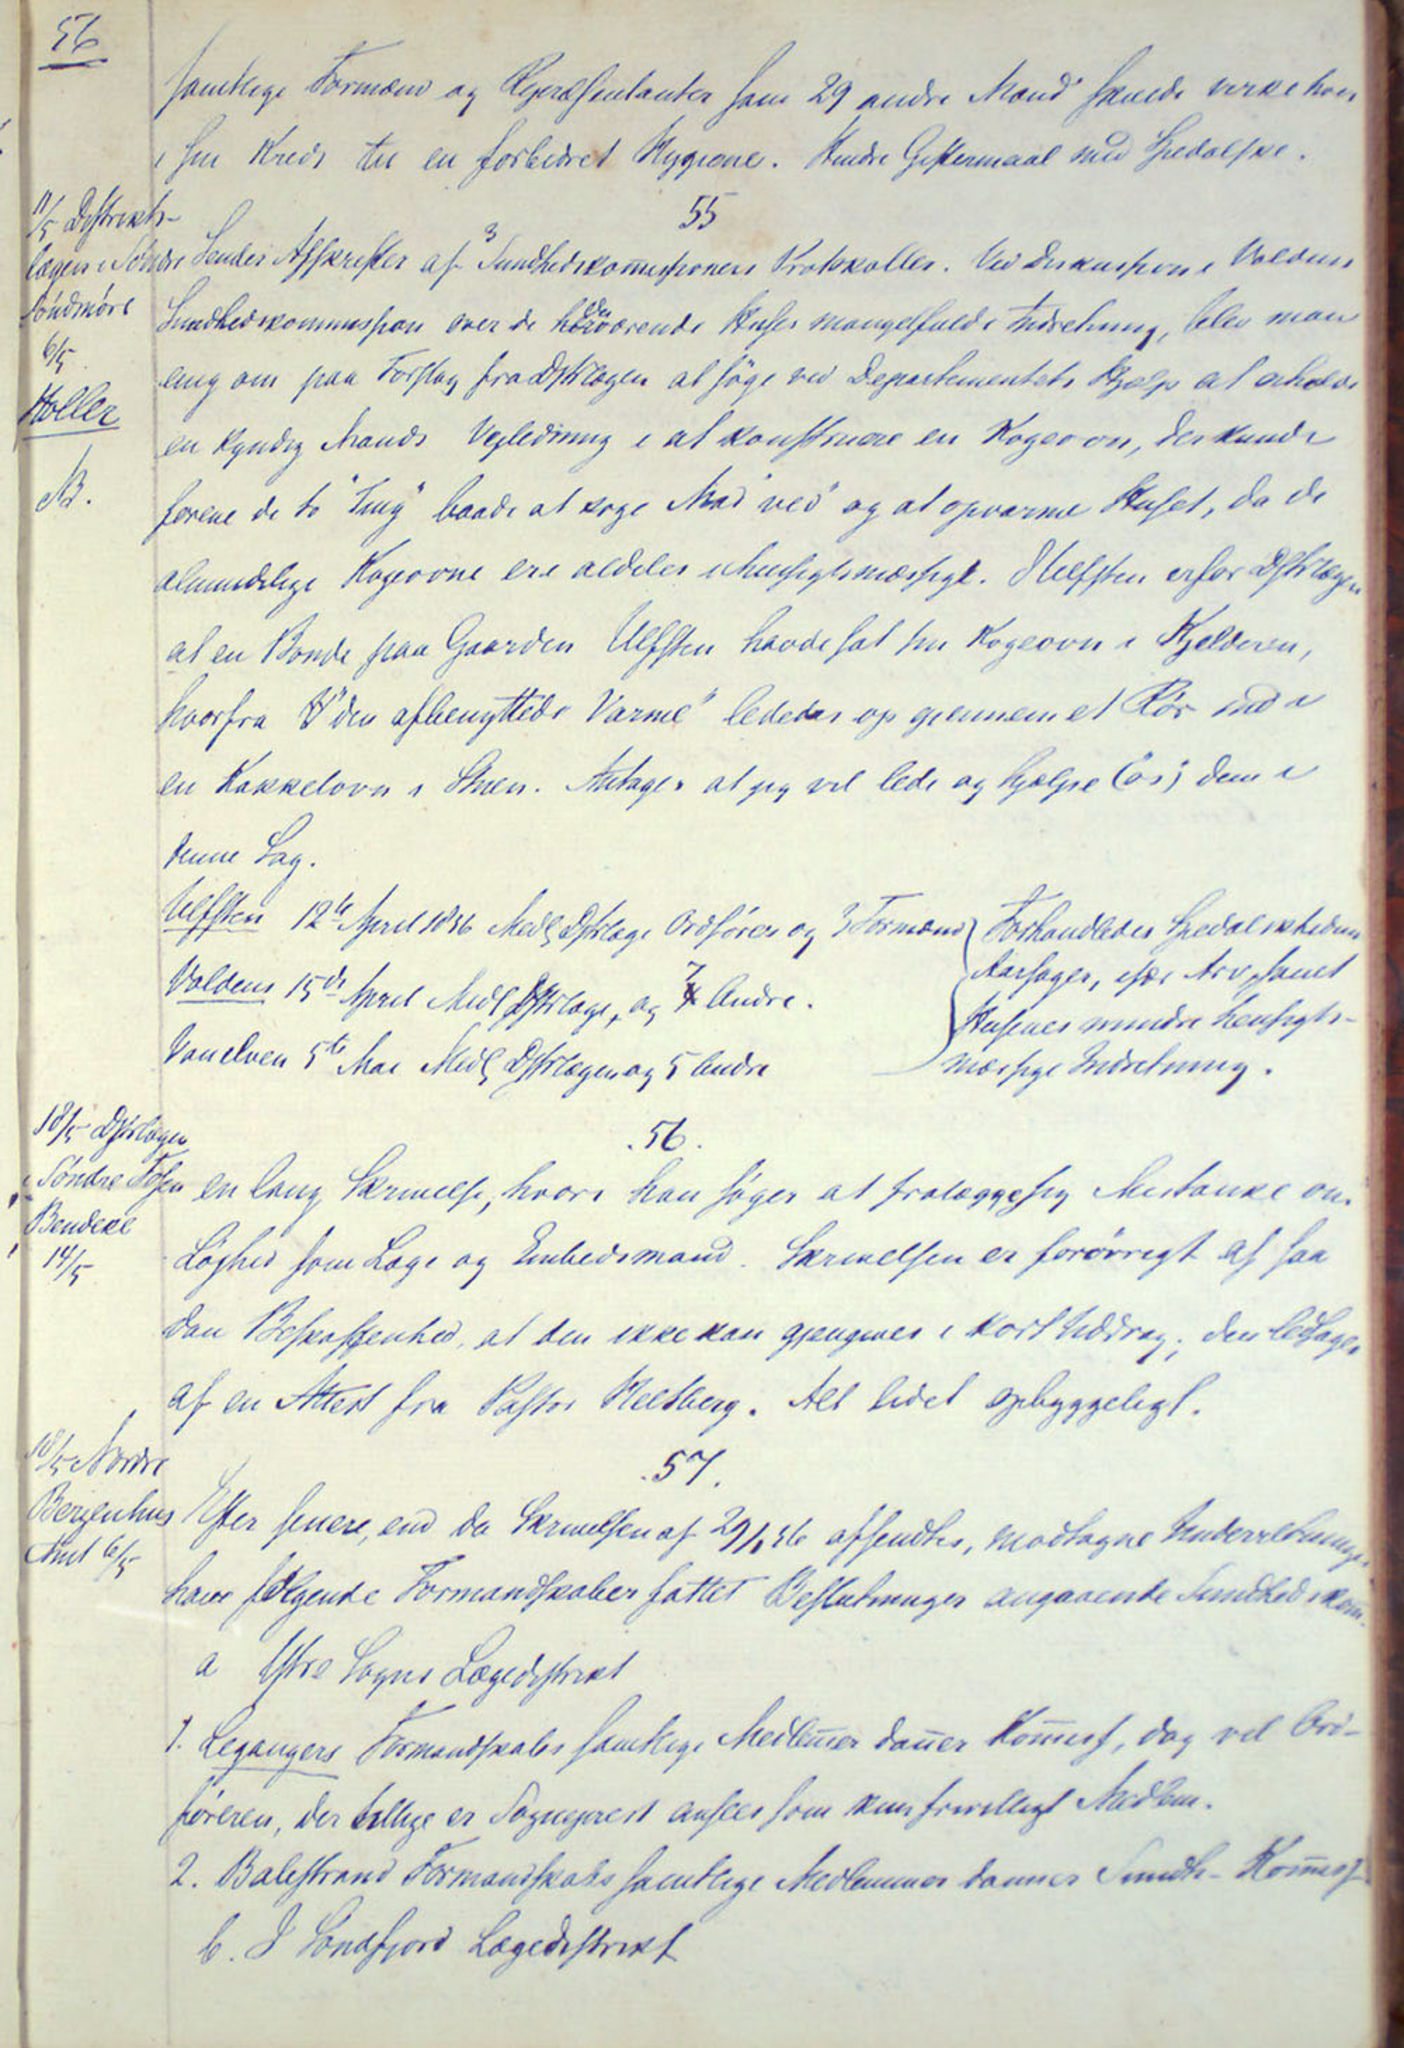 56
samtlige Formænd og Repræsentanter som 29 andre Mænd skulde virke hver
i sin Kreds til en forbedret Hygiene. Hindre Giftermaal med Spedalske.
55
11/5 Distrikts-
lægen i Söndre
Söndmöre
6/5
Holler
NB.
Sender Afskrifter af 3 Sundhedskommissioners Protokoller. Ved Diskussion i Voldens
Sundhedskommission over de herværende Huses mangelfulde Indretning, blev man
enig om paa Forslag fra Dstrlægen at söge ved Departementets Hjælp at erholde
en kyndig Mands Vejledning i at konstruere en Kogeovn, der kunde
forene de to "Ting" baade at koge Mad "ved" og at opvarme Huset, da de
almindelige Kogeovne ere aldeles uhensigtsmæssige. I Ulfsten erfor Dstrlægen
at en Bonde paa Gaarden Ulfsten havde sat sin Kogeovn i Kjelderen,
hvorfra "den afbenyttede Varme" lededes op gjennem et Rör ind i
en Kakkelovn i Stuen. Antager at jeg vil lede og hjælpe (os) dem i
denne Sag.
Ulfsten 12te April 1856 Medl. Dstrlæge Ordförer og 3 Formænd
Voldens 15de April Medl Dstrlæge, og 7 Andre.
Vanelven 5te Mai Medl. Dstrlægen og 5 Andre
Forhandledes Spedalskhedens
Aarsager, især Arv, samt
Husenes mindre hensigts-
mæssige Indretning.
18/5 Dstrlægen
i Söndre Fosen
Bendeke
14/5
.56.
en lang Skrivelse, hvori han söger at fralægge sig Mistanke om
Löshed som Læge og Embedsmand. Skrivelsen er forövrigt af saa
dan Beskaffenhed, at den ikke kan gjengives i kort Uddrag; den ledsages
af en Attest fra Pastor Heltberg. Alt lidet opbyggeligt.
18/5 Nordre
Bergenhus
Amt 6/5
.57.
Efter senere, end da Skrivelsen af 29/1 56 afsendtes, modtagne Underretninger
have fölgende Formandskaber fattet Beslutninger angaaende Sundhedskom.
a Ytre Sogns Lægedistrikt
1. Leganger Formandskabs samtlige Medlem̄er dan̄er Kom̄iss, dog vil Ord-
föreren, der tillige er Sogneprest ansees som kun frivilligt Medlem.
2. Balestrand Formandskabs samtlige Medlemmer danner Sundh- Kom̄iss
b. I Söndfjord Lægedistrikt